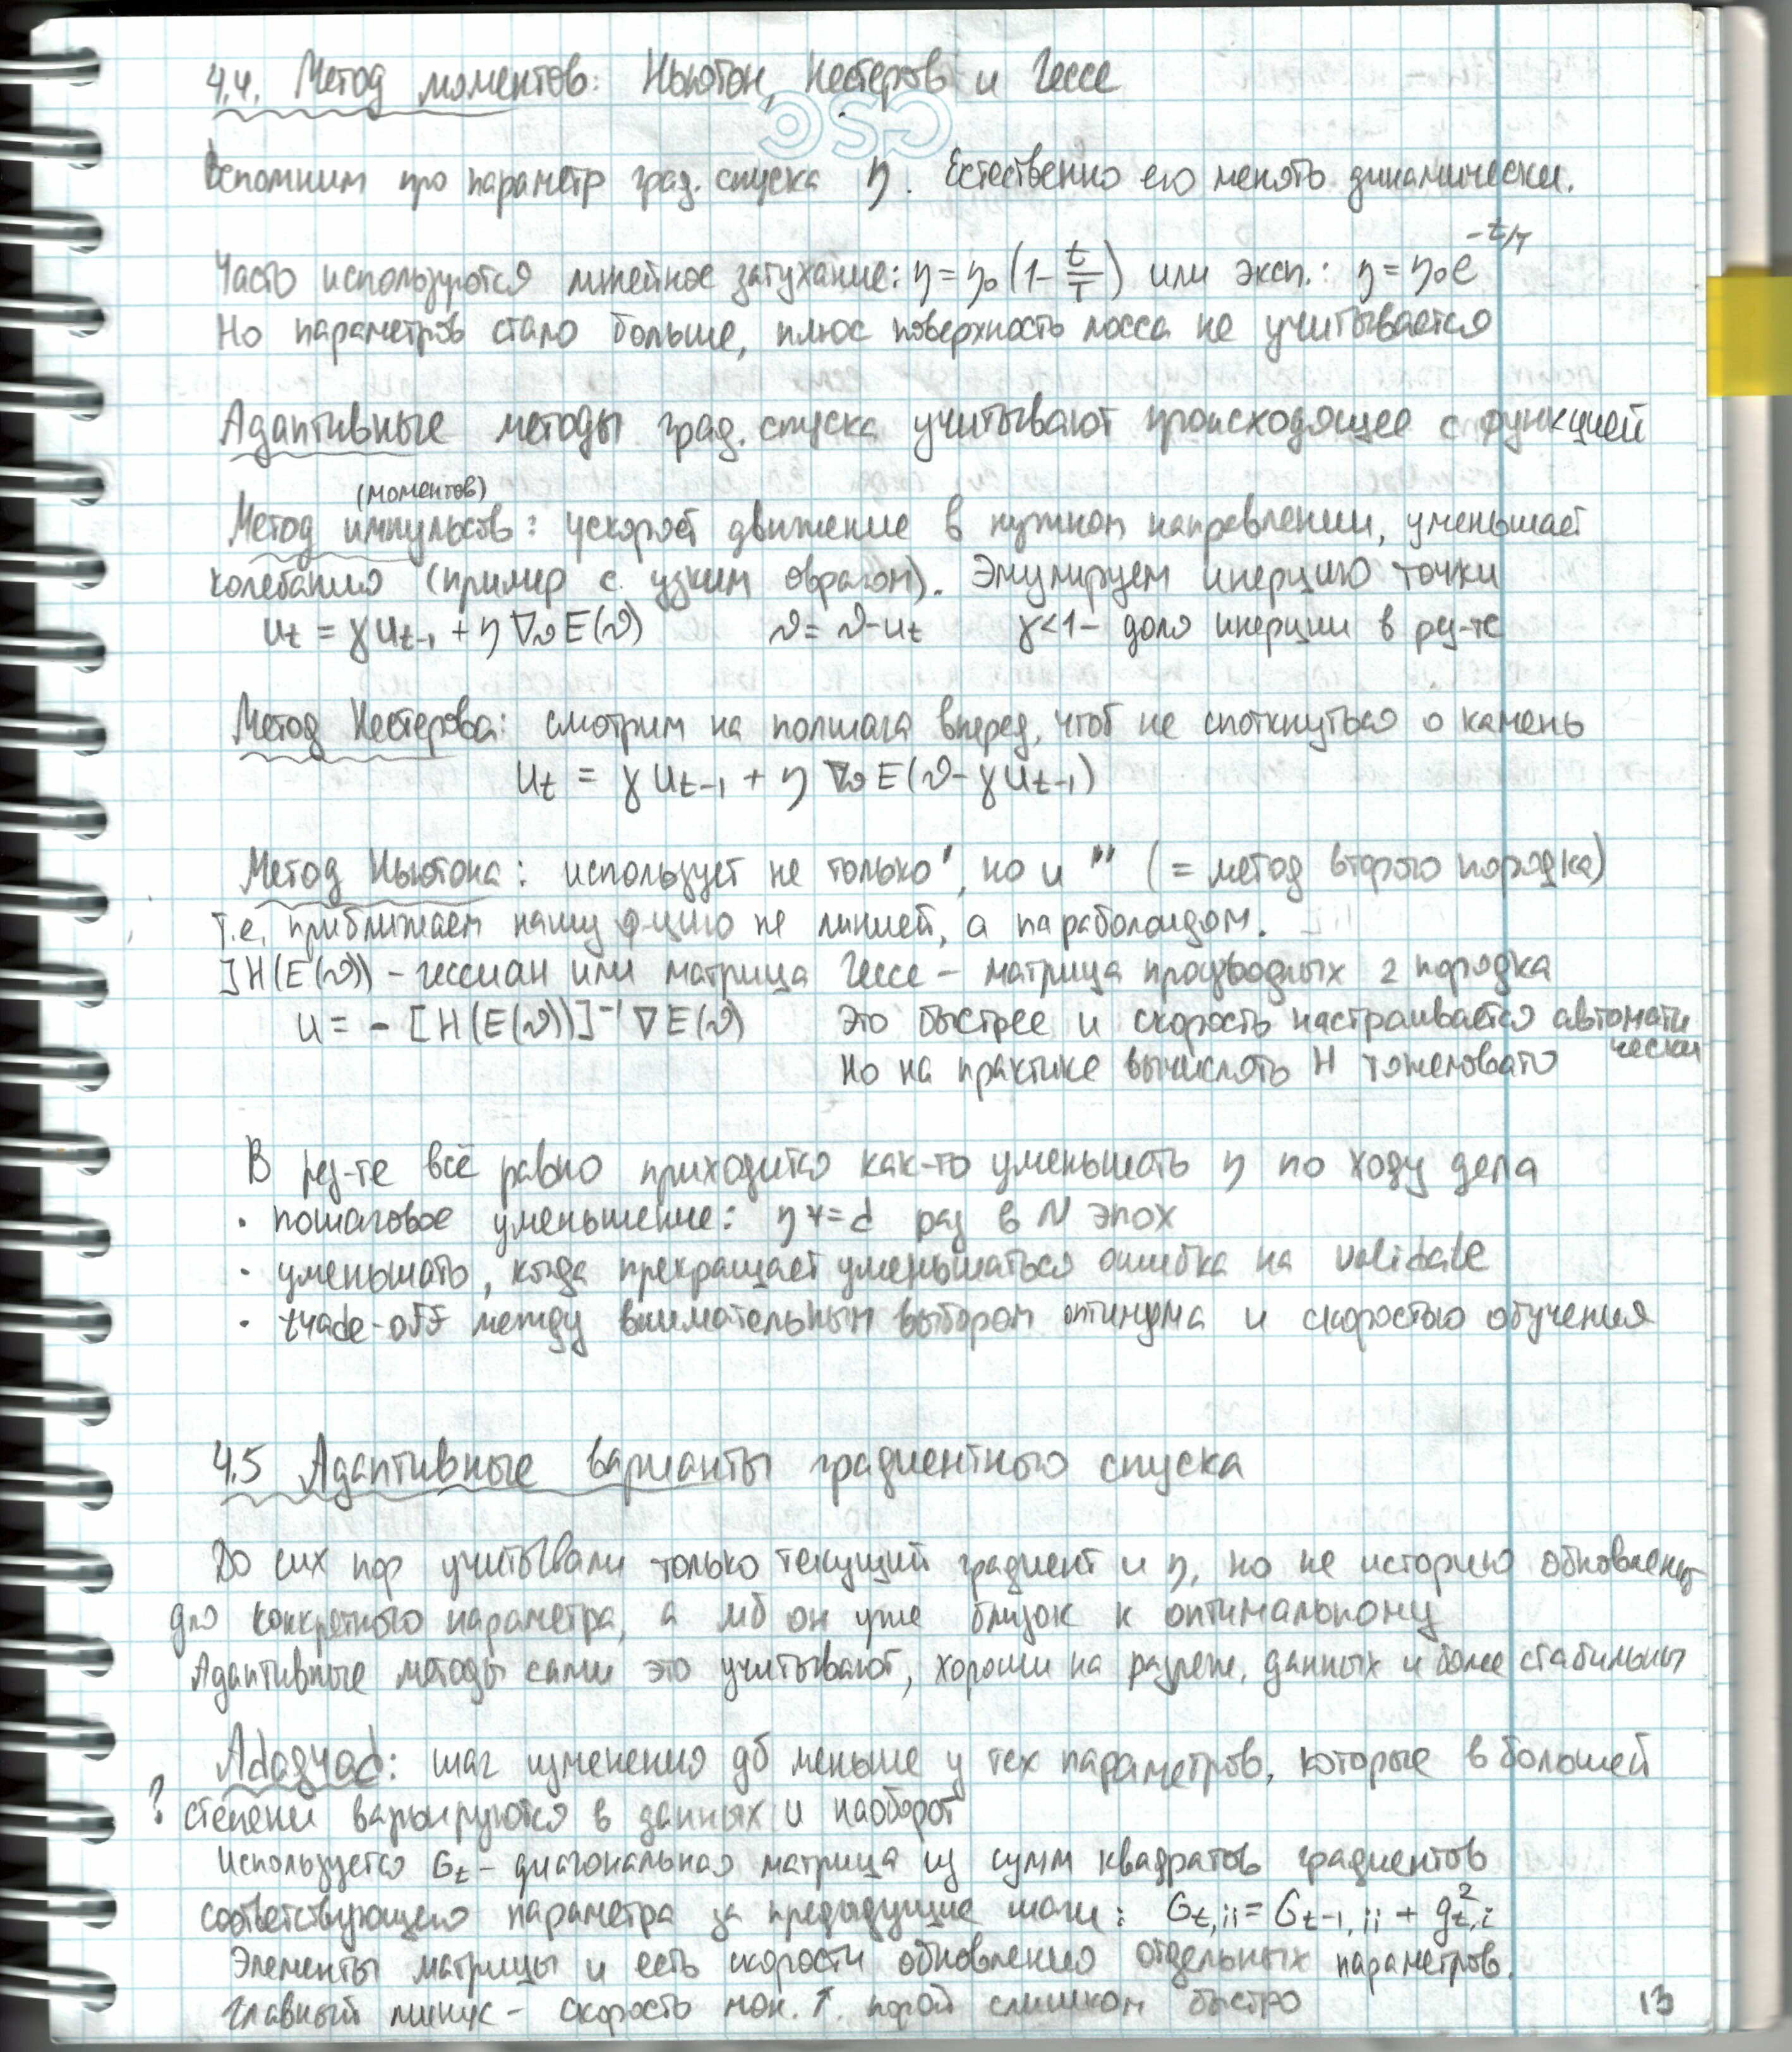 4.4. Метод моментов: Ньютон, Нестеров и Гессе
CSC
Вспомним про параметр град. спуска η. Естественно его менять динамически.
Часто используются линейное затухание: η = η₀ (1 - t/T) или эксп.: η = η₀e^(-t/T)
Но параметров стало больше, плюс поверхность лосса не учитывается
Адаптивные методы град. спуска учитывают происходящее с функцией
(моментов)
Метод импульсов: ускоряет движение в нужном направлении, уменьшает
колебания (пример с узким оврагом). Эмулируем инерцию точки
u_t = γ u_{t-1} + η ∇_ϑ E(ϑ) ϑ = ϑ - u_t γ<1 - доля инерции в рез-те
Метод Нестерова: смотрим на полшага вперед, чтоб не споткнуться о камень
u_t = γ u_{t-1} + η ∇_ϑ E(ϑ - γ u_{t-1})
Метод Ньютона: использует не только ', но и '' (= метод второго порядка)
т.е. приближаем нашу ф-цию не линией, а параболоидом.
]H(E(ϑ)) - гессиан или матрица Гессе - матрица производных 2 порядка
u = - [H(E(ϑ))]⁻¹ ∇E(ϑ) Это быстрее и скорость настраивается автомати
чески
Но на практике вычислять H тяжеловато
В рез-те всё равно приходится как-то уменьшать η по ходу дела
· пошаговое уменьшение: η *= d раз в N эпох
· уменьшать, когда прекращает уменьшаться ошибка на validate
· trade-off между внимательным выбором оптимума и скоростью обучения
4.5 Адаптивные варианты градиентного спуска
До сих пор учитывали только текущий градиент и η, но не историю обновлений
для конкретного параметра, а мб он уже близок к оптимальному
Адаптивные методы сами это учитывают, хороши на разреж. данных и более стабильны
Adagrad: шаг изменения дб меньше у тех параметров, которые в большей
? степени варьируются в данных и наоборот
Используется G_t - диагональная матрица из сумм квадратов градиентов
соответствующего параметра за предыдущие шаги: G_{t,ii} = G_{t-1,ii} + g²_{t,i}
Элементы матрицы и есть скорости обновления отдельных параметров.
Главный минус - скорость мон. ↑, порой слишком быстро
13